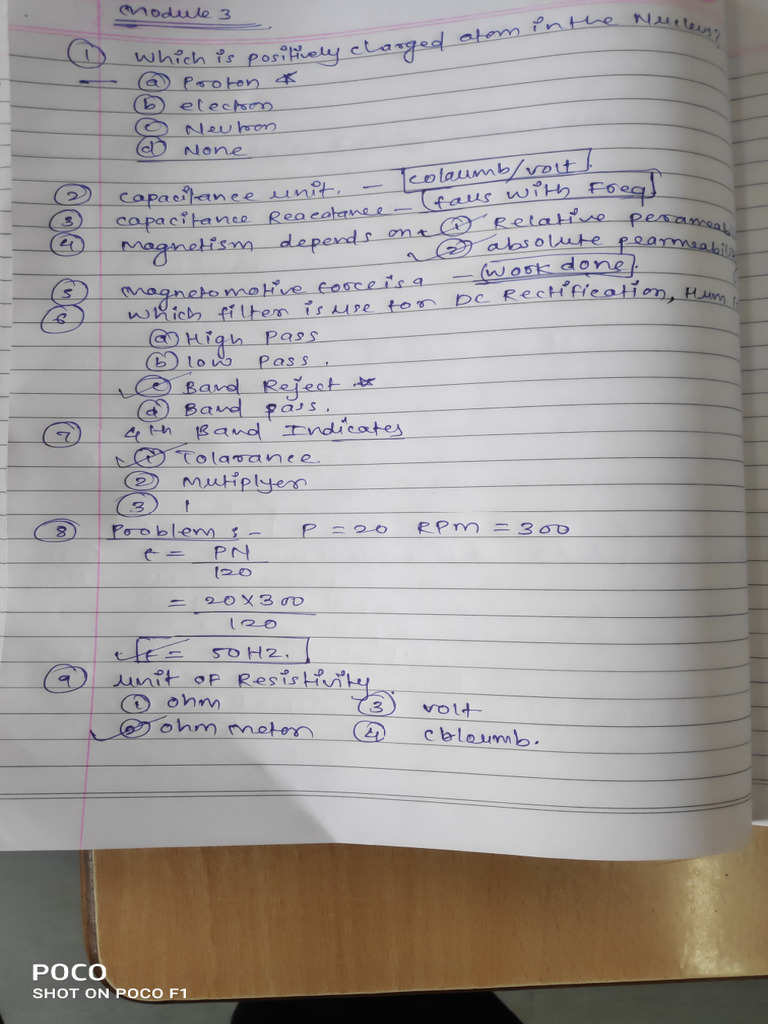 Module 3
① Which is positively charged atom in the Nucleus?
ⓐ Proton *
ⓑ electron
ⓒ Neutron
ⓓ None
② capacitance unit. - colaumb/volt.
③ capacitance Reacatance - falls with Freq
④ Magnetism depends on ① Relative perameab
② absolute pearmeabili
⑤ Magnetomotive force is a - work done.
⑥ which filter is use for DC Rectification, Hum
ⓐ High Pass
ⓑ low Pass.
ⓒ Band Reject *
ⓓ Band pass.
⑦ 4th Band Indicates
① Tolarance
② Mutiplyer
③ 1
⑧ Problem :- P = 20 RPM = 300
f = PN
120
= 20 × 300
120
f = 50 HZ.
⑨ unit of Resistivity
① ohm ③ volt
② ohm meter ④ coloumb.
POCO
SHOT ON POCO F1